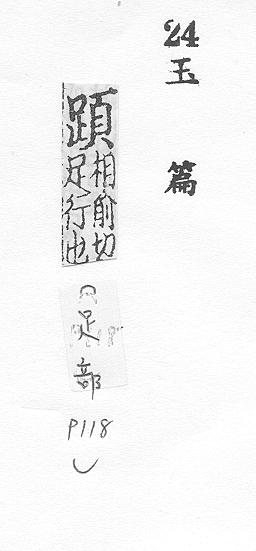 24
玉篇
相俞切
足行也
(足部 P118)